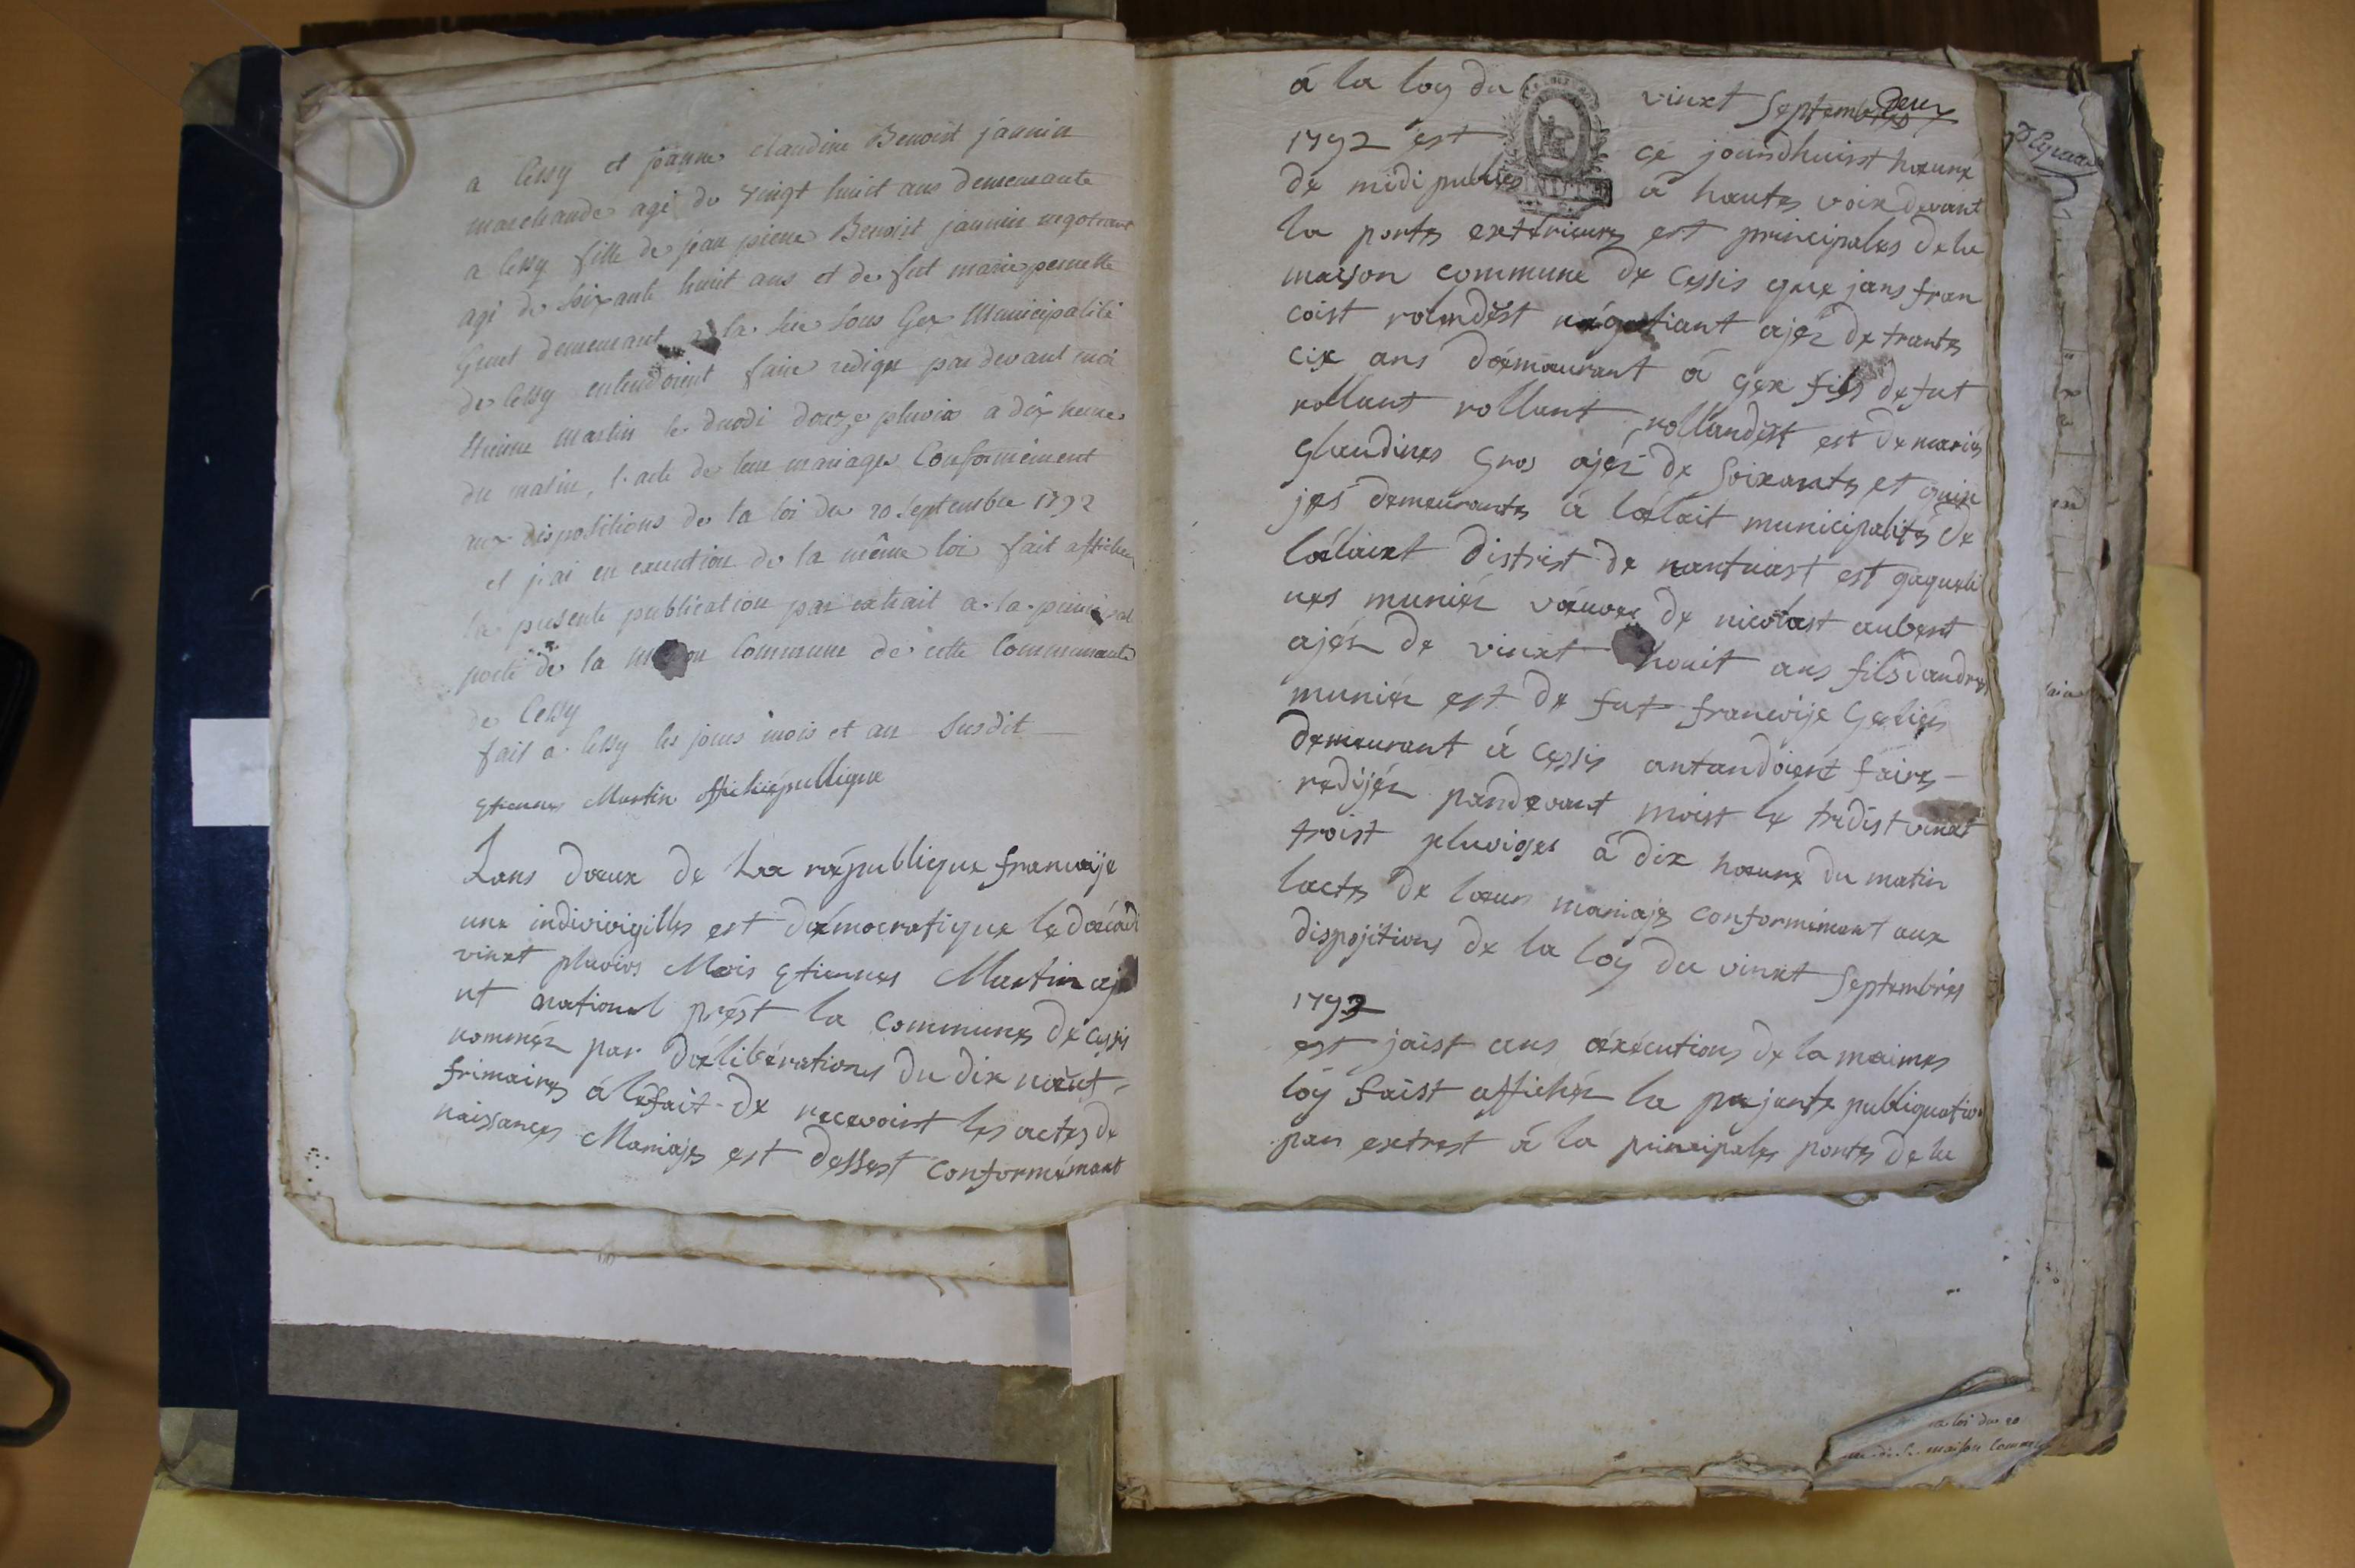 a Cessy et jeanne claudine Benoist jannin
marchande agé de vingt huict ans demeurante
a Cessy fille de jean pierre Benoist jannin negotiant
agé de soixante huit ans et de fut marie pernette
demeurant a la sous Gex Municipalité
de Cessy entendoient faire rediger par devant moi
Etienne Martin le duodi douze pluvios a dix heures
du matin, l'acte de leur mariage Conformément
aux dispositions de la loi du 20 septembre 1792
et j'ai en execution de la même loi fait afficher
la presente publication par extrait a la principal
porte de la Commune de cette Communauté
de Cessy
fait a Cessy les jours mois et an susdit
Etiennes Martin officié publique
Lans doeux de La république francaije
une indivivigilles est doémocratique le doécadi
vinxt pluvios Mois Etiennes Martin aja
nt national prést la communes de Cessis
nommér par doélibérations du dix noeut
frimaires à lefait de recevoirt les actes de
naissances Mariajes est dessest conformément
à la loy du vinxt Septembres
deux
1792 est cé jourdhuist hœure
de midi publiés à hautes voix devant
la portes extérieures est principales de la
maison commune de Cessis que jans fran
coist rolandést négotiant ajér de trantes
cix ans doémaurant à Gex fils de fut
rollant rollandist est de mariés
glaudines Gros ajér de soixantes et quin
jes demeurantes à laélait municipalités de
laélaixt distrist de nantuast est gaqueli
nes muniér voeuves de nicolast aubert
ajér de vinxt houit ans fils dandres
muniér est de fut francoije Gerliér
demeurant à Cessis antandoient faires
redijér pardevant moist le tridist vinxt
troist pluvioses à dix hœure du matin
lactes de lœur mariajes conformément aux
dispojitions de la loy du vinxt Septembrés
1792
est jaist ans oéxécutions de la maimes
loy faist affichér la prejante publiquatio
par extrest à la principales portes de la
la loi du 20
maison Commu